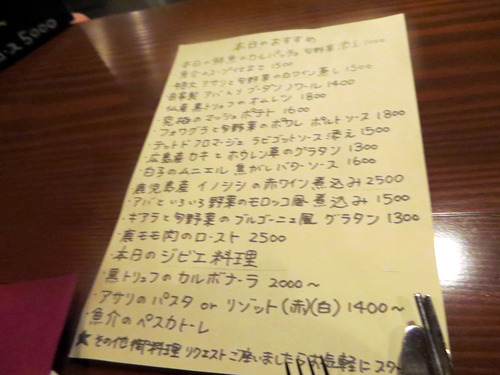 コース 5000
本日のおすすめ
本日の鮮魚のカルパッチョ 旬野菜添え 1000
魚介の 1500
特大 アサリと旬野菜の白ワイン蒸し 1500
自家製 アバ入り ブーダン ノワール 1400
仏産 黒トリュフのオムレツ 1800
究極のマッシュポテト 1600
・フォワグラと旬野菜のポワレ ポルトソース 1800
・テットド フロマージュ ラビゴットソース添え 1500
・広島産カキとホウレン草のグラタン 1300
・白子のムニエル 焦がしバターソース 1600
・鹿児島産 イノシシの赤ワイン煮込み 2500
・アバといろいろ野菜のモロッコ風煮込み 1500
・ギアラと旬野菜のブルゴーニュ風 グラタン 1300
・鹿モモ肉のロースト 2500
・本日のジビエ料理
・黒トリュフのカルボナーラ 2000～
・アサリのパスタ or リゾット(赤)(白) 1400～
・魚介のペスカトーレ
★その他御料理リクエストご座いましたらお気軽にスタ